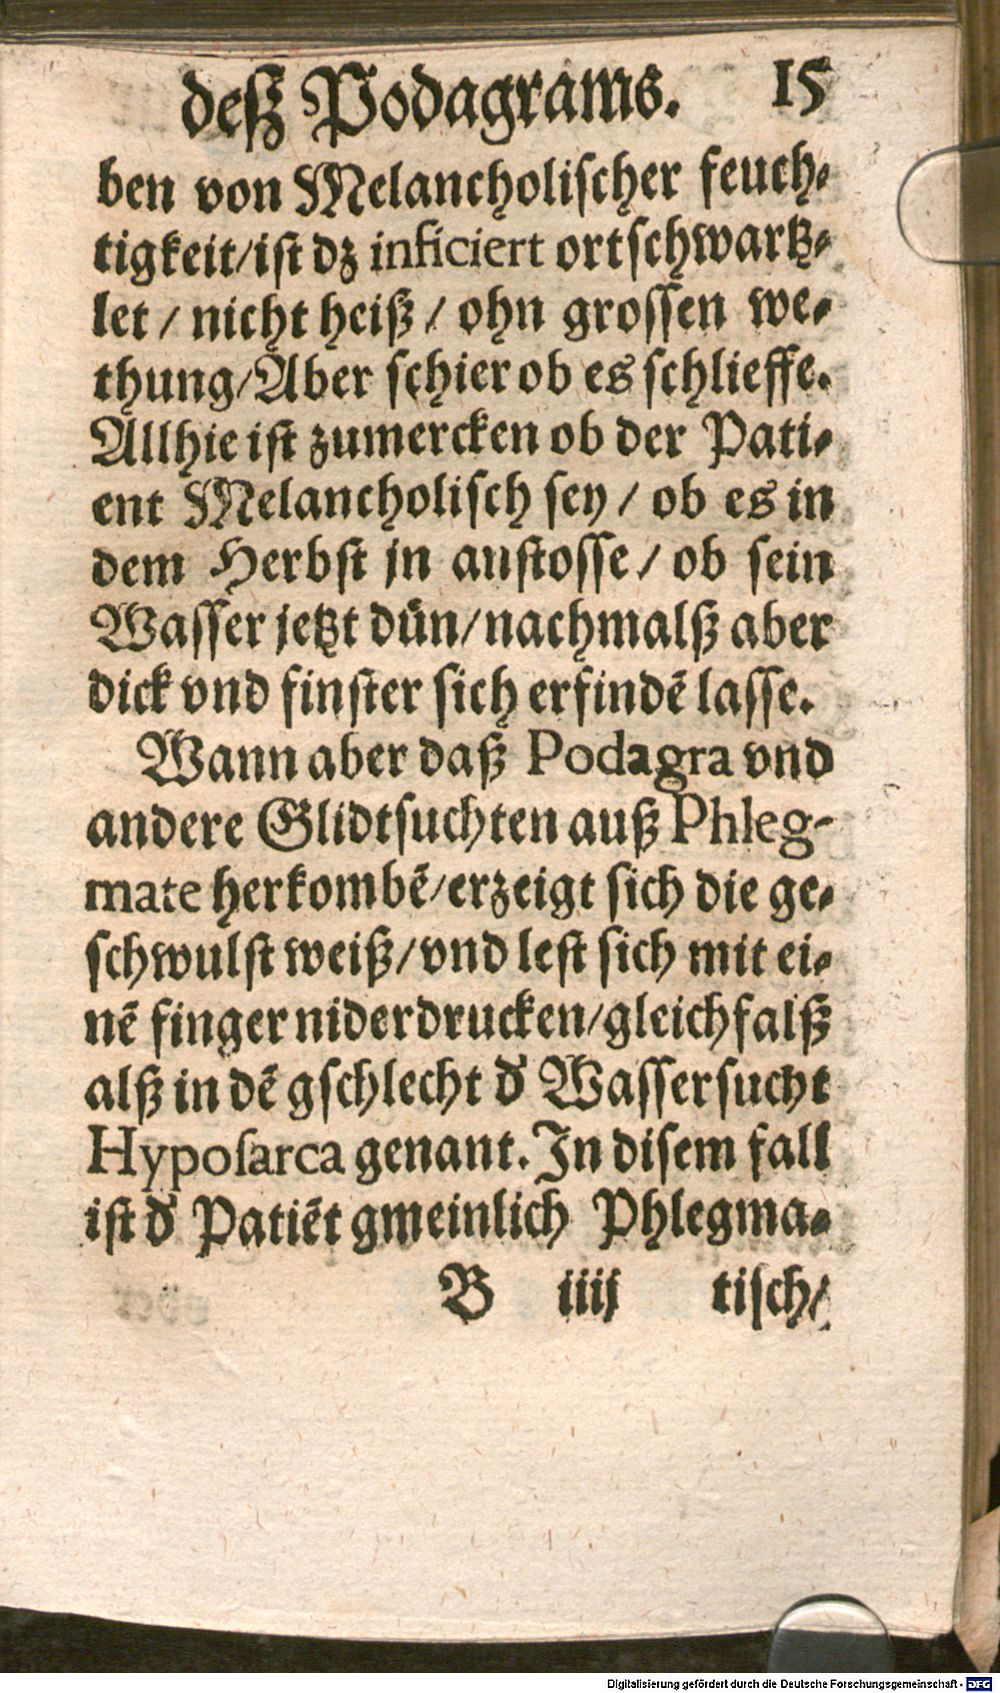 deß Podagrams. 15
ben von Melancholischer feuch-
tigkeit/ist dz inficiert ortschwartz-
let / nicht heiß / ohn grossen we-
thung/Aber schier ob es schlieffe.
Allhie ist zumercken ob der Pati-
ent Melancholisch sey / ob es in
dem Herbst jn anstosse / ob sein
Wasser jetzt dün/nachmalß aber
dick vnd finster sich erfindẽ lasse.
Wann aber daß Podagra vnd
andere Glidtsuchten auß Phleg-
mate herkombẽ/erzeigt sich die ge-
schwulst weiß/vnd lest sich mit ei-
nẽ finger niderdrucken/gleichfalß
alß in dẽ gschlecht d' Wassersucht
Hyposarca genant. In disem fall
ist d' Patiẽt gmeinlich Phlegma-
B iiij tisch/
Digitalisierung gefördert durch die Deutsche Forschungsgemeinschaft - DFG